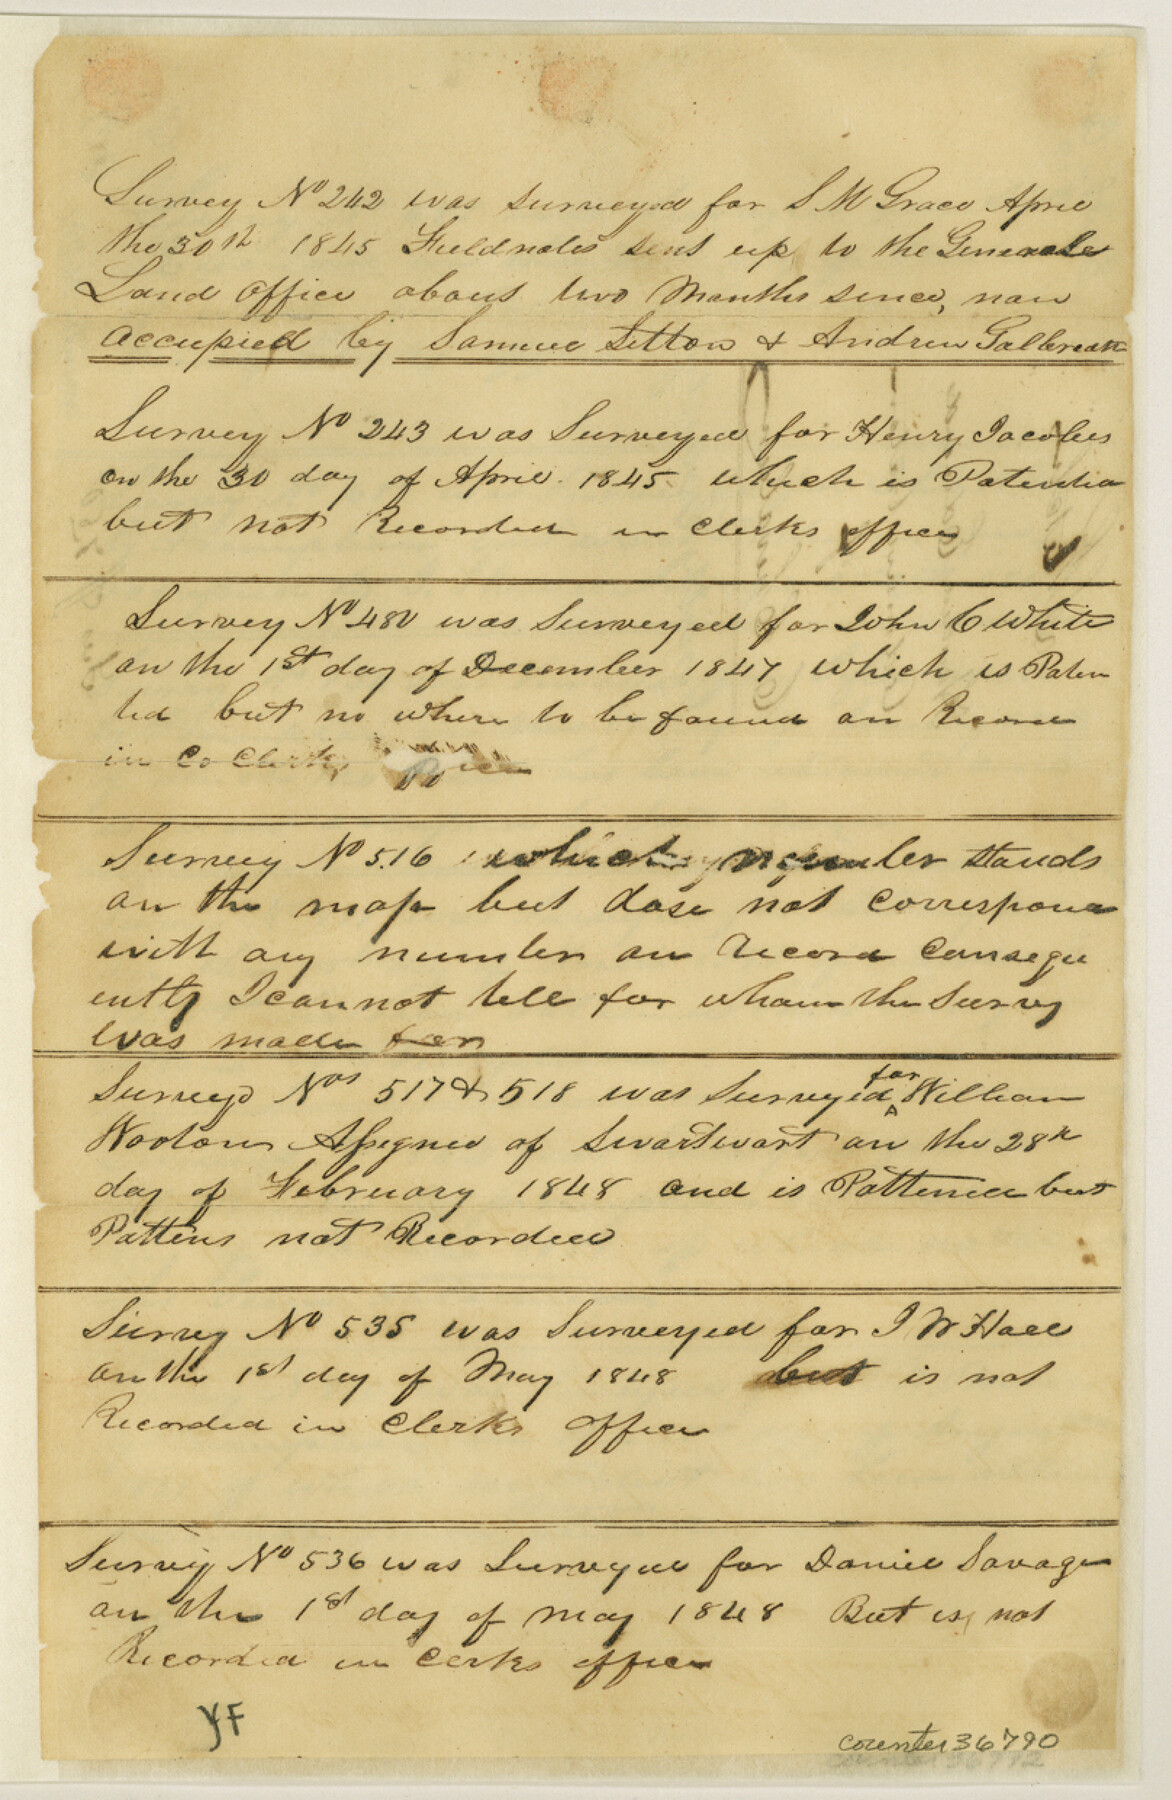 Survey No 242 was surveyed for S M Grace April
the 30th 1845 Fieldnotes sent up to the General
Land office about two Months since, now
occupied by Samuel Sitton & Andrew Galbreath
Survey No 243 was Surveyed for Henry Jacobus
on the 30 day of April 1845 which is Patented
but not Recorded in Clerks office
Survey No 480 was Surveyed for John C White
on the 1st day of December 1847 which is Paten
ted but no where to be found on Record
in Co Clerks
Survey No 516 which number stands
on the map but dose not correspond
with any number on Record Consequ
ently I cannot tell for whom the Survey
was made for
Surveys Nos 517 & 518 was Surveyed for William
Wooton Assignee of Swartwart on the 28th
day of February 1848 and is Pattened but
Pattens not Recorded
Survey No 535 was Surveyed for J W Hall
on the 1st day of May 1848 but is not
Recorded in Clerks office
Survey No 536 was Surveyed for Daniel Savage
on the 1st day of May 1848 But is not
Recorded in Cerks office
counter 36790